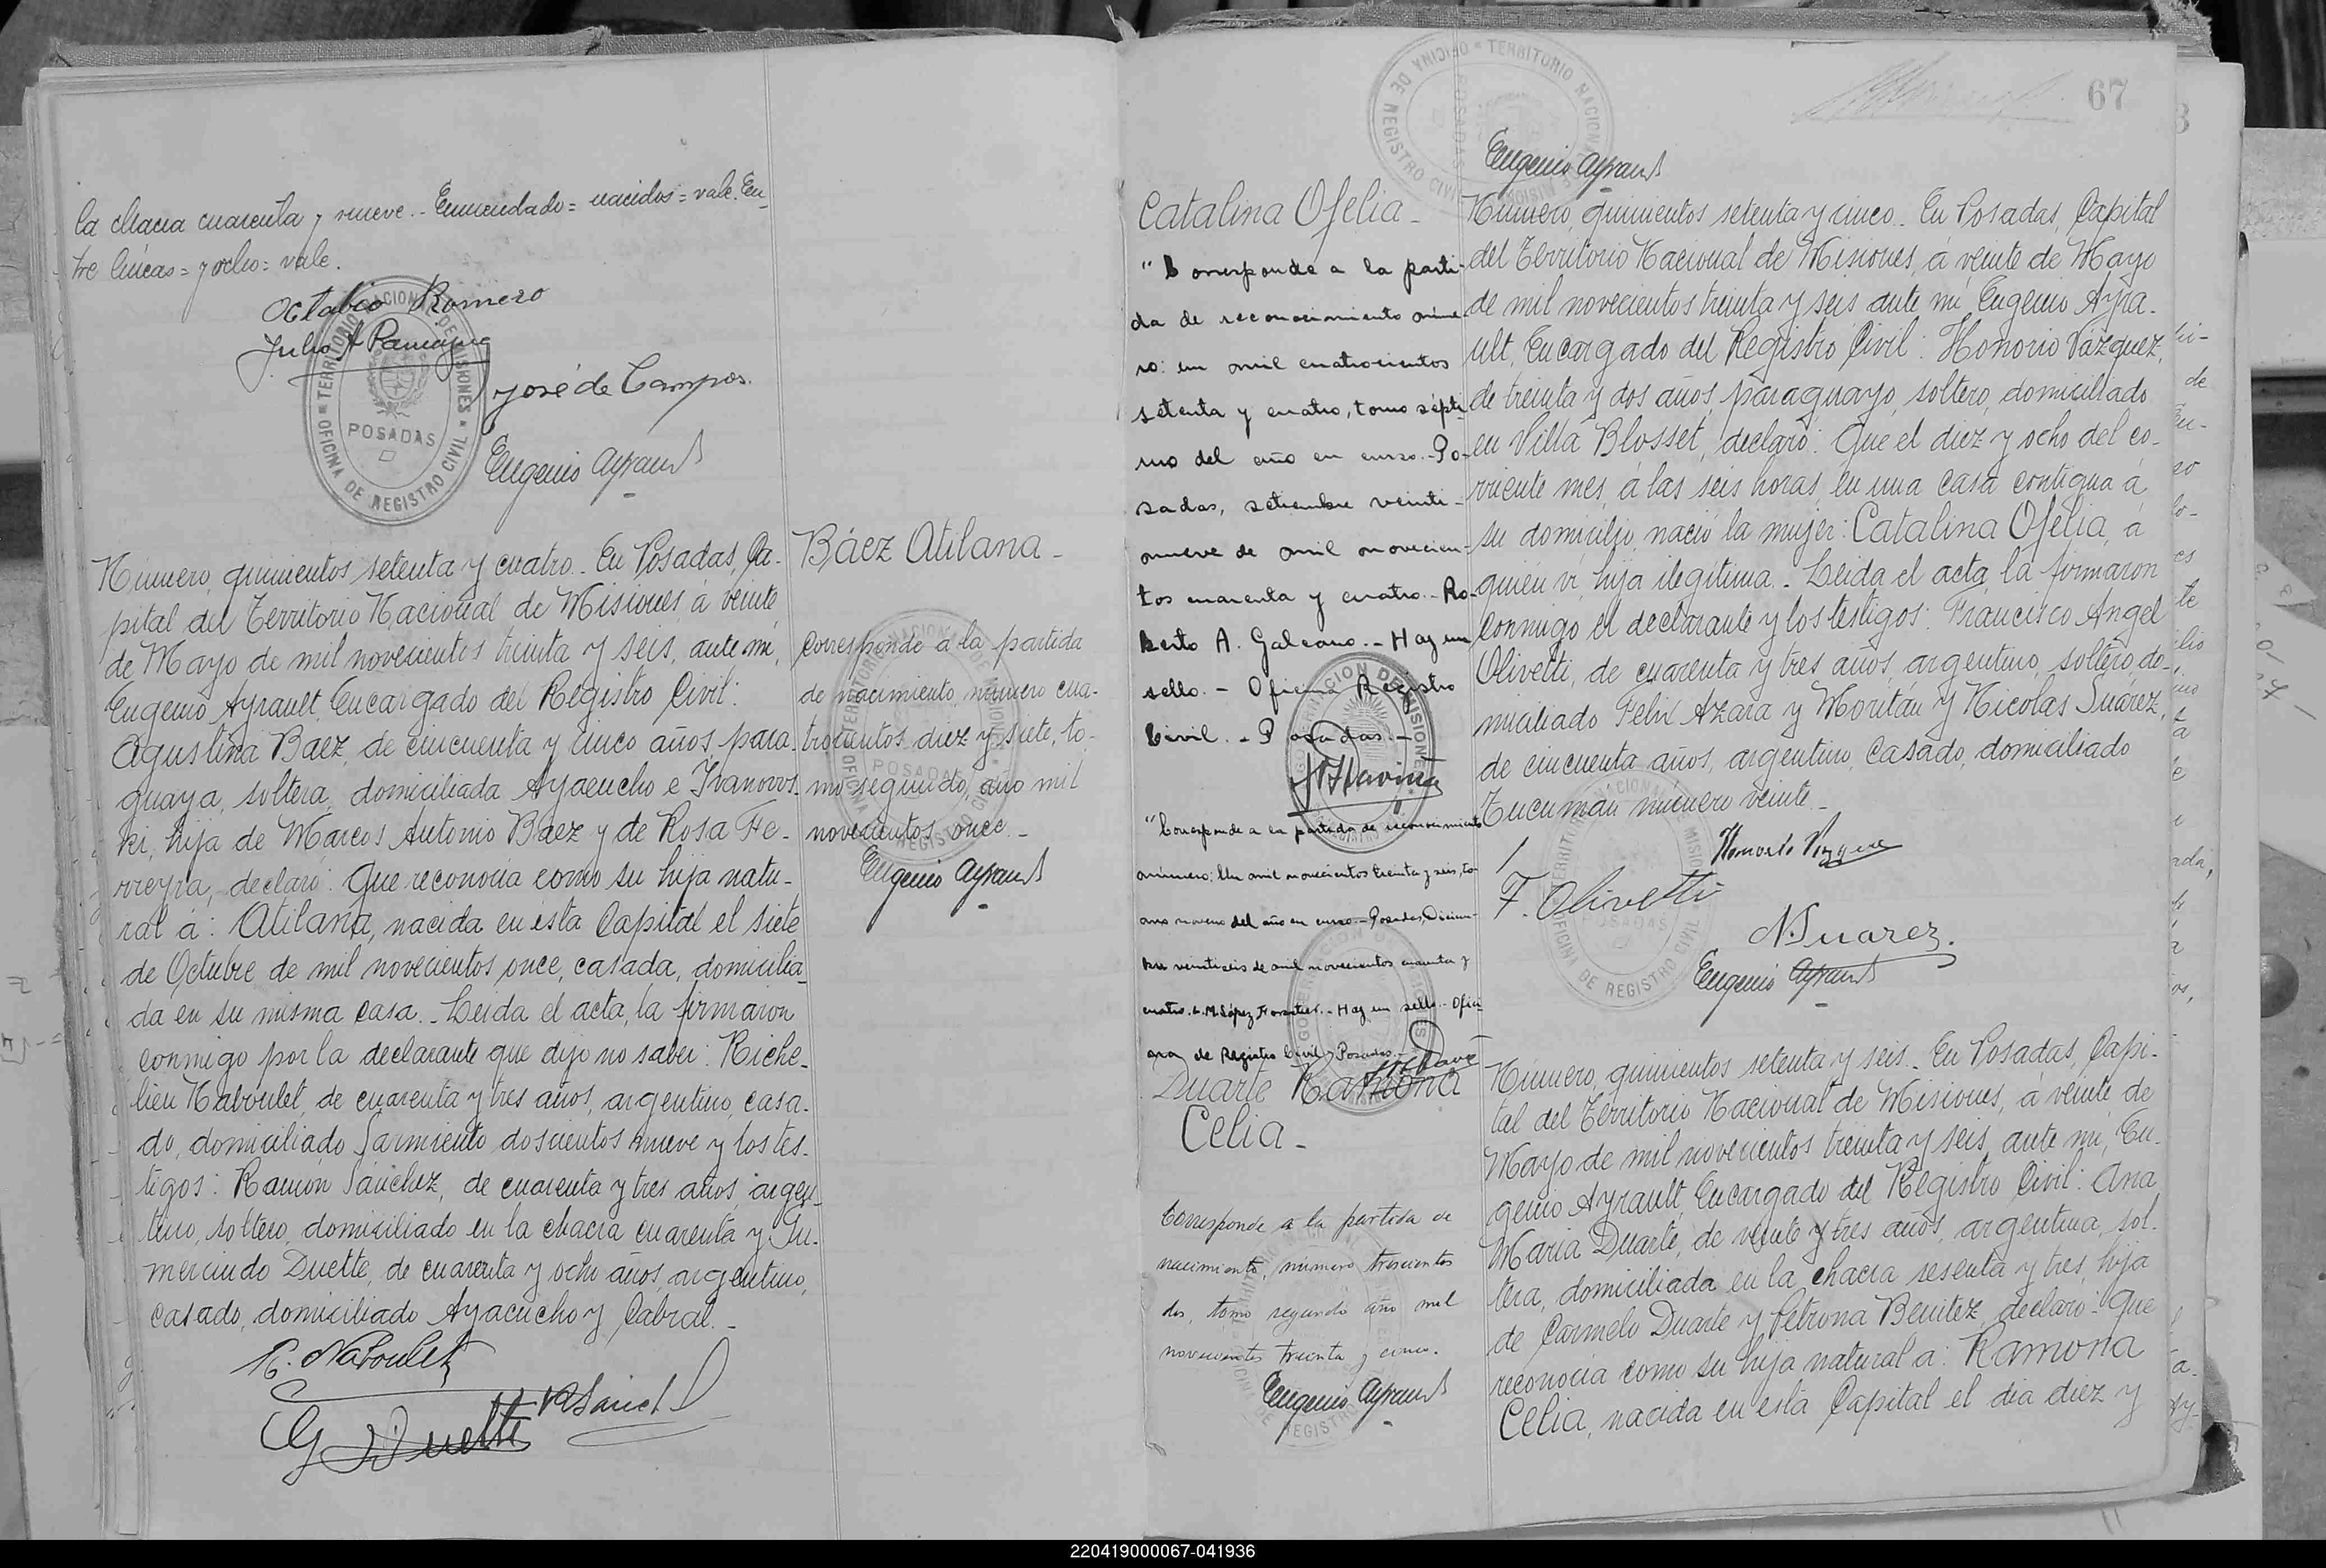 la chacra cuarenta y nueve.- Enmendado= nacidos= vale. En-
tre líneas= y ocho= vale.
Octabio Romero
Julio A
José de Campos.
Eugenio Ayrault
TERRITORIO NACIONAL DE MISIONES
POSADAS
OFICINA DE REGISTRO CIVIL
Número, quinientos setenta y cuatro.- En Posadas, Ca-
pital del Territorio Nacional de Misiones, á veinte
de Mayo de mil novecientos treinta y seis, ante mi,
Eugenio Ayrault, Encargado del Registro Civil:
Agustina Baez, de cincuenta y cinco años, para-
guaya, soltera, domiciliada Ayacucho e Ivanows-
ki, hija de Marcos Antonio Báez y de Rosa Fe-
rreyra, declaró: Que reconocía como su hija natu-
ral á: Atilana, nacida en ésta Capital el siete
de Octubre de mil novecientos once, casada, domicilia-
da en su misma casa.- Leida el acta, la firmaron
conmigo por la declarante que dijo no saber: Riche-
lieu Naboulet, de cuarenta y tres años, argentino, casa-
do, domiciliado Sarmiento doscientos nueve y los tes-
tigos: Ramón Sánchez, de cuarenta y tres años, argen-
tino, soltero, domiciliado en la chacra cuarenta y Gu-
mercindo Duette, de cuarenta y ocho años, argentino,
casado, domiciliado Ayacucho y Cabral.-
R. Naboulet
R Sanchez
G Duette
Báez Atilana-
Corresponde á la partida
de nacimiento, número cua-
trocientos diez y siete, to-
mo segundo, año mil
novecientos once.-
Eugenio Ayrault
67
Eugenio Ayrault
Catalina Ofelia-
"Corresponde a la parti-
da de reconocimiento núme-
ro: un mil cuatrocientos
setenta y cuatro, tomo sépti-
mo del año en curso.- Po-
sadas, setiembre veinti-
nueve de mil novecien-
tos cuarenta y cuatro.- Ro-
berto A. Galeano.- Hay un
sello.- Oficina Registro
Civil.- Posadas.-
"Corresponde a la partida de reconocimiento
número: Un mil novecientos treinta y seis, to-
mo noveno del año en curso.- Posadas, Diciem-
bre veintiseis de mil novecientos cuarenta y
cuatro.- Hay un sello.- Ofici-
na de Registro Civil, Posadas.-
Número, quinientos setenta y cinco.- En Posadas, Capital
del Territorio Nacional de Misiones, á veinte de Mayo
de mil novecientos treinta y seis ante mi Eugenio Ayra-
ult, Encargado del Registro Civil: Honorio Vázquez,
de treinta y dos años, paraguayo, soltero, domiciliado
en Villa Blosset, declaró: Que el diez y ocho del co-
rriente mes, á las seis horas, en una casa contigua á
su domicilio, nació la mujer: Catalina Ofelia, á
quién vi, hija ilegítima.- Leida el acta, la firmaron
conmigo el declarante y los testigos: Francisco Angel
Olivetti, de cuarenta y tres años, argentino, soltero, do-
miciliado Felix Azara y Moritán y Nicolas Suárez,
de cincuenta años, argentino, casado, domiciliado
Tucumán número veinte.-
Honorio Vazquez
F. Olivetti
N. Suarez.
Eugenio Ayrault
Duarte Ramona
Celia-
Corresponde a la partida de
nacimiento, número trescientos
dos, tomo segundo año mil
novecientos treinta y cinco.
Eugenio Ayrault
Número, quinientos setenta y seis.- En Posadas, Capi-
tal del Territorio Nacional de Misiones, á veinte de
Mayo de mil novecientos treinta y seis, ante mi, Eu-
genio Ayrault, Encargado del Registro Civil: Ana
Maria Duarte, de veinte y tres años, argentina, sol-
tera, domiciliada en la chacra sesenta y tres, hija
de Carmelo Duarte y Petrona Benitez, declaró: Que
reconocía como su hija natural a: Ramona
Celia, nacida en ésta Capital el día diez y
220419000067-041936